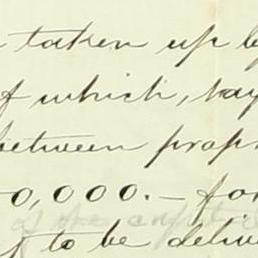 taken up b
of which, say
between prop
0,000.— for
to be deliv